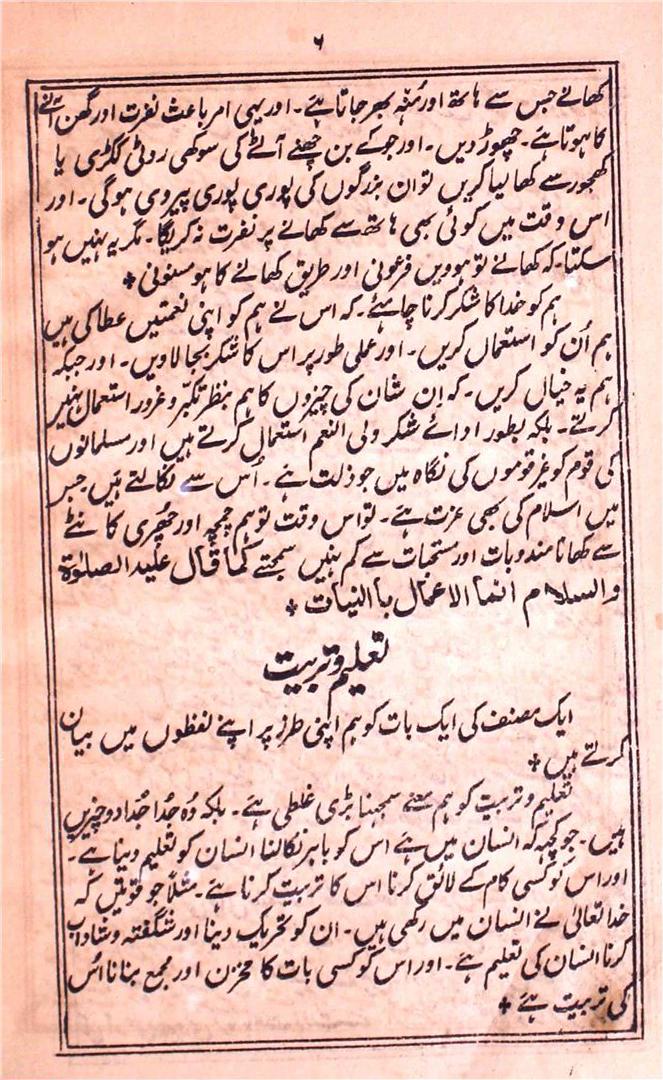 ۶
کھانے جس سے ہاتھ اور مُنہ بھر جاتا ہے۔ اور یہی امر باعث نفرت اور گھن آنے
کا ہوتا ہے۔ چھوڑ دیں۔ اور جو کے بن چھنے آٹے کی سوکھی روٹی ککڑی یا
کھجور سے کھا لیا کریں تو ان بزرگوں کی پوری پوری پیروی ہوگی۔ اور
اس وقت میں کوئی بھی ہاتھ سے کھانے پر نفرت نہ کریگا۔ مگر یہ نہیں ہو
سکتا۔ کہ کھانے تو ہوویں فرعونی اور طریق کھانے کا ہو مسنونی +
ہم کو خدا کا شکر کرنا چاہیئے۔ کہ اس نے ہم کو اپنی نعمتیں عطا کی ہیں
ہم اُن کو استعمال کریں۔ اور عملی طور پر اس کا شکر بجا لاویں۔ اور جبکہ
ہم یہ خیال کریں۔ کہ اِن شان کی چیزوں کا ہم بنظر تکبّر و غرور استعمال نہیں
کرتے۔ بلکہ بطور ادائے شکر ولی النعم استعمال کرتے ہیں اور مسلمانوں
کی قوم کو غیر قوموں کی نگاہ میں جو ذلت ہے۔ اُس سے نکالتے ہیں جس
میں اسلام کی بھی عزت ہے۔ تو اس وقت تو ہم چمچہ اور چھُری کانٹے
سے کھانا مندوبات اور مستحبات سے کم نہیں سمجتے کما قال علیہ الصلوٰۃ
والسلام انما الاعمال باالنیات +
تعلیم و تربیت
ایک مصنف کی ایک بات کو ہم اپنی طرز پر اپنے لفظوں میں بیان
کرتے ہیں +
تعلیم و تربیت کو ہم معنے سمجہنا بڑی غلطی ہے۔ بلکہ وُہ جُدا جُدا دو چیزیں
ہیں۔ جو کچہہ کہ انسان میں ہے اس کو باہر نکالنا انسان کو تعلیم دینا ہے۔
اور اس کو کسی کام کے لائق کرنا اس کا تربیت کرنا ہے۔ مثلاً جو قوتیں کہ
خدا تعالیٰ نے انسان میں رکھی ہیں۔ ان کو تحریک دینا اور شگفتہ و شاداب
کرنا انسان کی تعلیم ہے۔ اور اس کو کسی بات کا مخزن اور مجمع بنانا اُس
کی تربیت ہے +